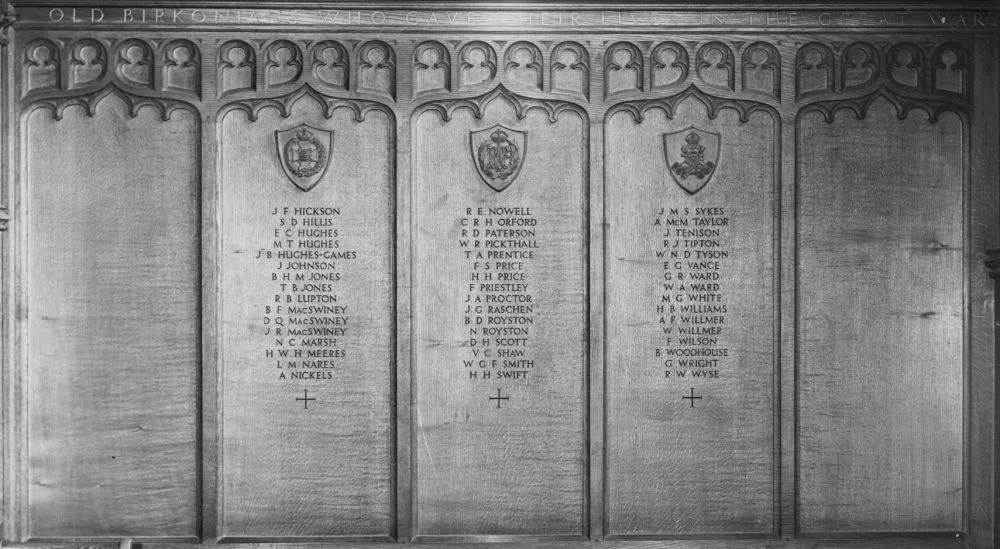 OLD BIRKONIANS WHO GAVE THEIR LIVES IN THE GREAT WAR
J F HICKSON
S D HILLIS
E C HUGHES
M T HUGHES
J B HUGHES-GAMES
J JOHNSON
B H M JONES
T B JONES
R B LUPTON
B F MACSWINEY
D Q MACSWINEY
J R MACSWINEY
N C MARSH
H W H MEERES
L M NARES
A NICKELS
R E NOWELL
C R H ORFORD
R D PATERSON
W R PICKTHALL
T A PRENTICE
F S PRICE
H H PRICE
F PRIESTLEY
J A PROCTOR
J G RASCHEN
B D ROYSTON
N ROYSTON
D H SCOTT
V C SHAW
W G F SMITH
H H SWIFT
J M S SYKES
A McM TAYLOR
J TENISON
R J TIPTON
W N D TYSON
E G VANCE
G R WARD
W A WARD
M G WHITE
H B WILLIAMS
A F WILLMER
W WILLMER
F WILSON
B WOODHOUSE
G WRIGHT
R W WYSE